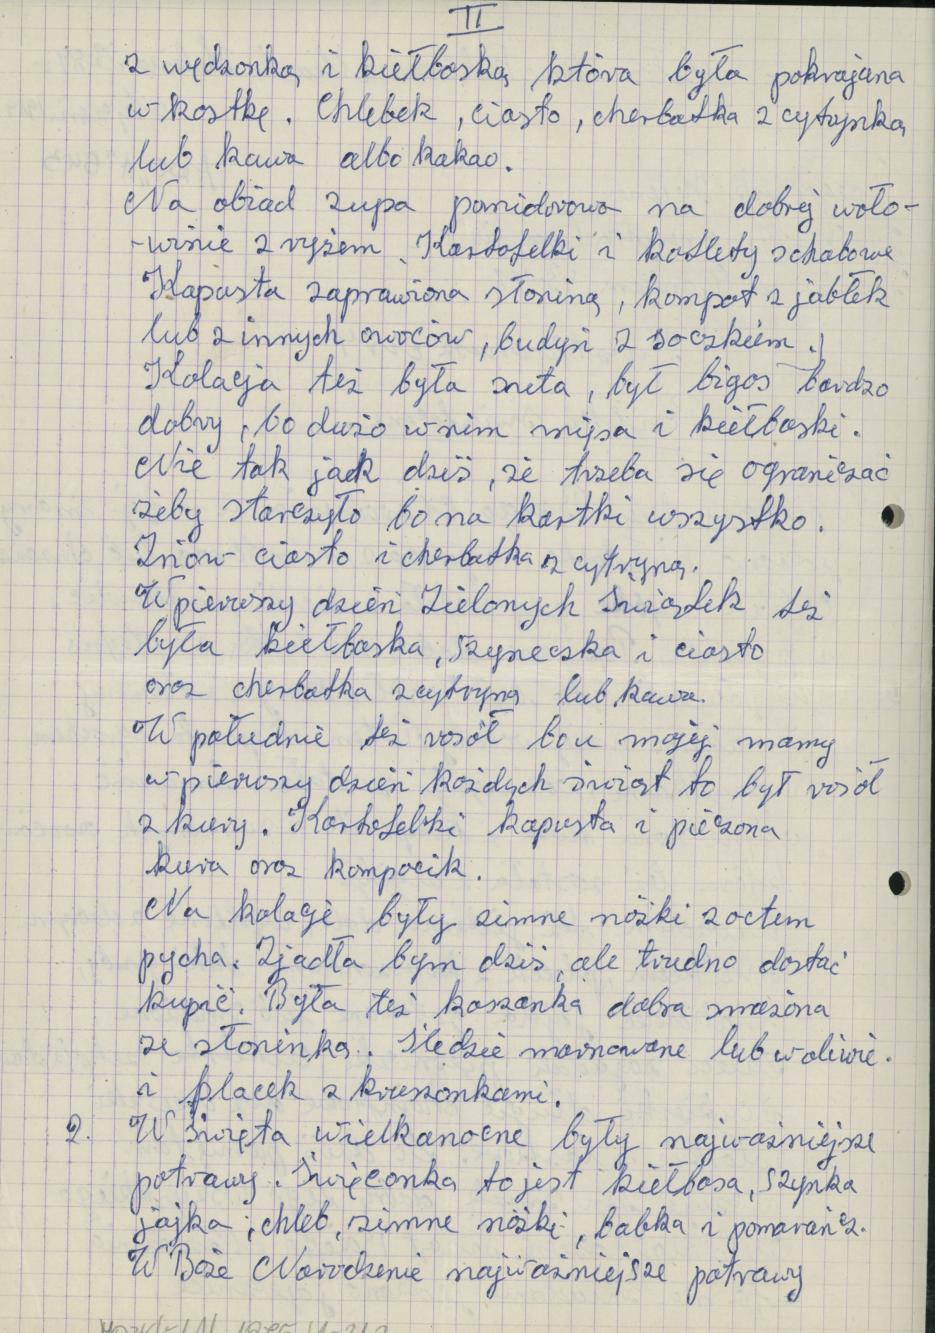 II
z wędzonką i kiełbaską która była pokrajana
w kostkę. Chlebek, ciasto, cherbatka z cytrynką
lub kawa albo kakao.
Na obiad zupa pomidorowa na dobrej woło-
-winie z ryżem. Kartofelki i kotlety schabowe
Kapusta zaprawiona słoniną, kompot z jabłek
lub z innych owoców, budyń z soczkiem.
Kolacja też była suta, był bigos bardzo
dobry, bo dużo w nim mięsa i kiełbaski.
Nie tak jak dziś, że trzeba się ograniczać
żeby starczyło bo na kartki wszystko.
Znów ciasto i cherbatka z cytryną.
W pierwszy dzień Zielonych Świątek też
była kiełbaska, szyneczka i ciasto
oraz cherbatka z cytryną lub kawa.
W południe też rosół bo u mojej mamy
w pierwszy dzień każdych świąt to był rosół
z kury. Kartofelki kapusta i pieczona
kura oraz kompocik.
Na kolacje były zimne nóżki z octem
pycha. Zjadła bym dziś, ale trudno dostać
kupić. Była też kaszanka dobra smażona
ze słoninką. Śledzie marnowane lub w oliwie.
i placek z kruszonkami.
2. W święta wielkanocne były najważniejsze
potrawy. Święconka to jest kiełbasa, szynka
jajka, chleb, zimne nóżki, babka i pomarańcz.
W Boże Narodzenie najważniejsze potrawy